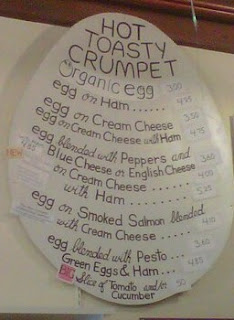 HOT
TOASTY
CRUMPET
Organic egg 3.00
egg on Ham...... 4.25
egg on Cream Cheese 3.50
egg on Cream Cheese with Ham 4.75
egg blended with Peppers and
Blue Cheese or English Cheese 3.60
on Cream Cheese ...... 4.00
with Ham ........ 5.25
egg on Smoked Salmon blended
with Cream Cheese ..... 4.00
egg blended with Pesto.... 3.60
Green Eggs & Ham ... 4.85
Slice of Tomato and/or .50
Cucumber